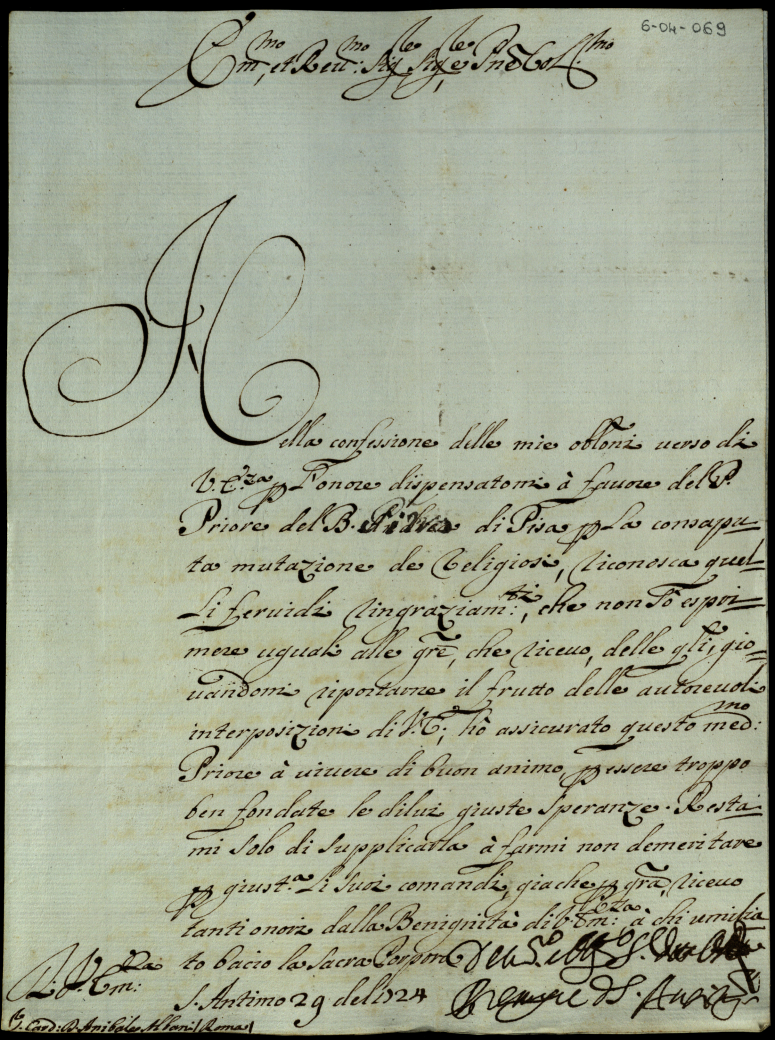 6-04-069
Em.mo, et Reu:mo Sig.re Sig.re e Pñe Col.mo
Nella confessione delle mie obb̃oni uerso di
V. E.za ꝑ l'onore dispensatomi à fauore del P.
Priore del B. di Pisa ꝑ La consapu=
ta mutazione de Religiosi, riconosca quel=
li feruidi ringraziam:ti, che non sò espri=
mere uguali alle gr̃e, che riceuo, delle q̃li, gio=
uandomi riportarne il frutto delle autoreuoli
interposizioni di V. E., hò assicurato questo med:mo
Priore à uiuere di buon animo, ꝑ essere troppo
ben fondate le dilui giuste speranze. Resta=
mi solo di supplicarla à farmi non demeritare
ꝑ giust.a li suoi comandi, giache ꝑ gr̃a, riceuo
tanti onori dalla Benignità di V. Em:za à chi umilia
to bacio la Sacra Porpora
Di V. Em:za
S. Antimo 29 del 1724
S. Card: D. Anibale Albani / Roma /